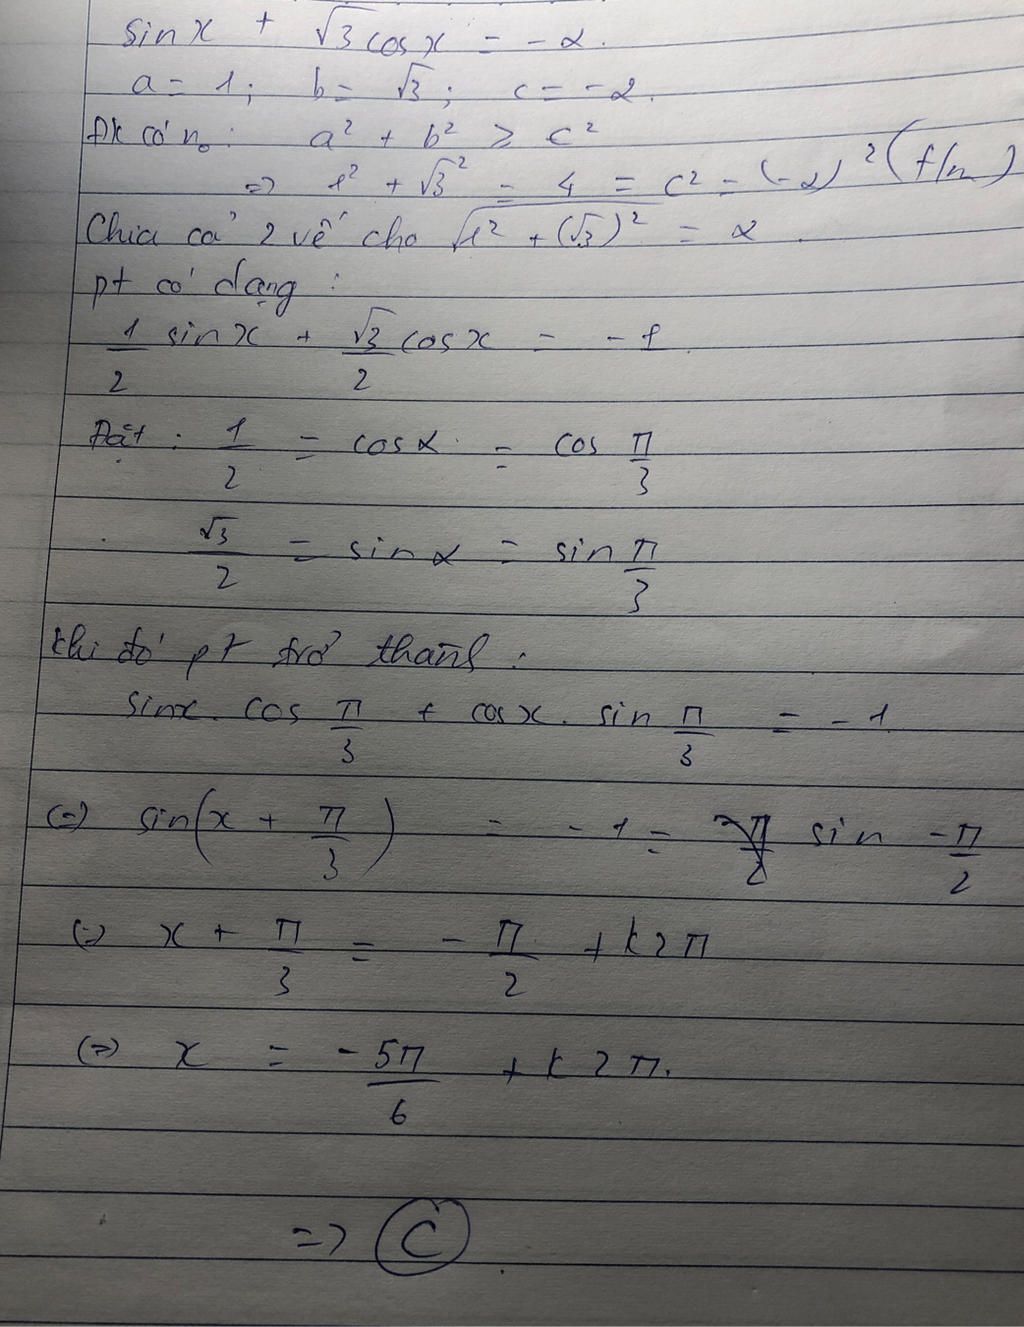 sinx + √3 cosx = -2.
a = 1; b = √3; c = -2.
Đk có n₀: a² + b² ≥ c²
=> 1² + √3² = 4 = c² = (-2)² (t/m)
Chia cả 2 vế cho √(1² + (√3)²) = 2.
pt có dạng:
1/2 sinx + √3/2 cosx = -1
Đặt: 1/2 = cosα = cos π/3
√3/2 = sinα = sin π/3
Khi đó pt trở thành:
sinx. cos π/3 + cosx. sin π/3 = -1
(=) sin(x + π/3) = -1 = sin -π/2
(=) x + π/3 = -π/2 + k2π
(=) x = -5π/6 + k2π.
=> C